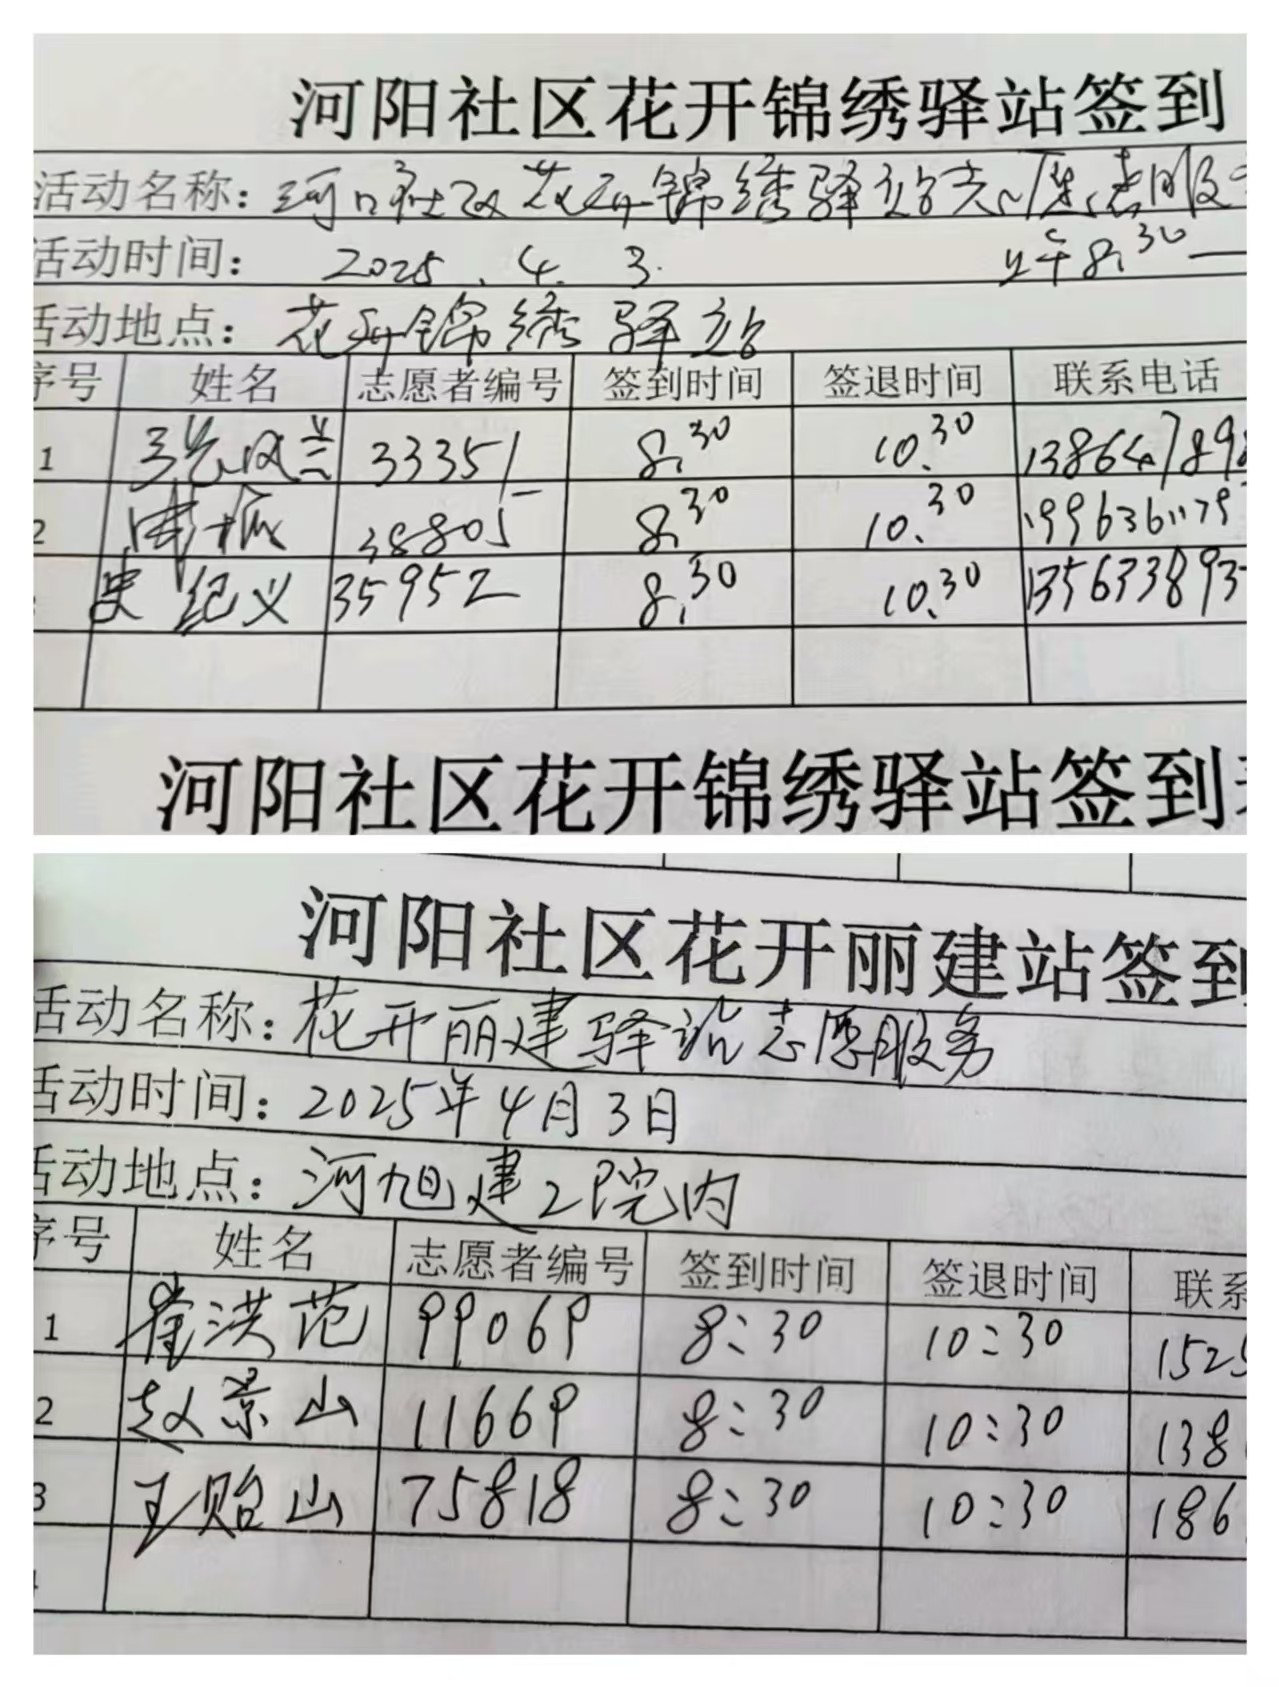 河阳社区花开锦绣驿站签到
活动名称: 河口社区花开锦绣驿站志愿者服
活动时间: 2025.4.3. 上午8.30—
活动地点: 花开锦绣驿站
序号 姓名 志愿者编号 签到时间 签退时间 联系电话
1 凤兰 33351 8.30 10.30 138647898
2 38805 8.30 10.30 1996361179
史纪义 35952 8.30 10.30 135633893
河阳社区花开锦绣驿站签到表
河阳社区花开丽建站签到
活动名称: 花开丽建驿站志愿服务
活动时间: 2025年4月3日
活动地点: 河旭建2院内
序号 姓名 志愿者编号 签到时间 签退时间 联系
1 崔洪范 99069 8:30 10:30 1525
2 赵景山 11669 8:30 10:30 138
3 王贻山 75818 8:30 10:30 186